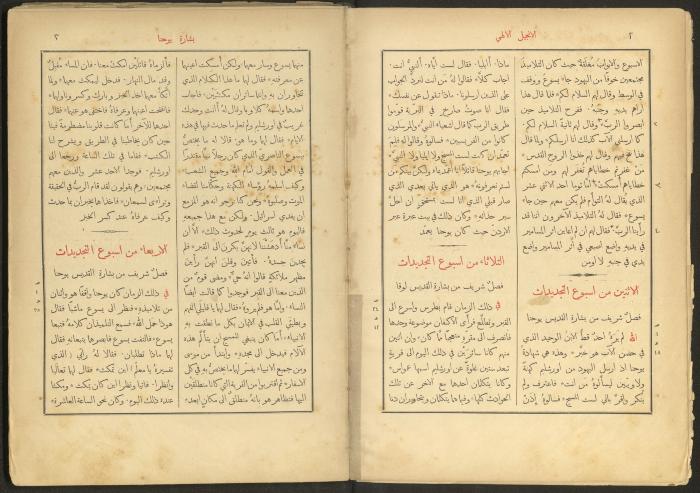 ٢
الانجيل الالهي
الاسبوع والابواب مغلقة حيث كان التلاميذ
مجتمعين خوفاً من اليهود جاء يسوع ووقف
في الوسط وقال لهم السلام لكم* فلما قال هذا
أراهم يديه وجنبه* ففرح التلاميذ حين
أبصروا الرب* وقال لهم ثانية السلام لكم*
كما أرسلني الآب كذلك أنا أرسلكم* ولما قال
هذا نفخ فيهم وقال لهم خذوا الروح القدس*
من غفرتم خطاياهم تُغفر لهم ومن أمسكتم
خطاياهم أُمسكت* أما توما أحد الاثني عشر
الذي يقال له التوأم فلم يكن معهم حين جاء
يسوع* فقال له التلاميذ الآخرون اننا قد
رأينا الرب* فقال لهم ان لم أعاين اثر المسامير
في يديه وأضع اصبعي في أثر المسامير وأضع
يدي في جنبه لا أومن
الاثنين من اسبوع التجديدات
فصل شريف من بشارة القديس يوحنا
الله لم يره أحد قط الابن الوحيد الذي
في حضن الآب هو خبّر* وهذه هي شهادة
يوحنا إذ أرسل اليهود من أورشليم كهنة
ولاويين ليسألوه من أنت* فاعترف ولم
ينكر وأقر بأني لست المسيح* فسألوه إذن
ماذا* أإيليا* قال لست إياه* ألنبي أنت*
أجاب كلا* فقالوا له من أنت لنرد الجواب
على الذين أرسلونا* ماذا تقول عن نفسك*
قال أنا صوت صارخ في البرية قوموا
طريق الرب كما قال اشعياء النبي* والمرسلون
كانوا من الفريسيين* فسألوه وقالوا له فلم
تعمد ان كنت لست المسيح ولا إيليا ولا النبي*
أجابهم يوحنا قائلاً أنا أعمد بالماء ولكن بينكم من
لستم تعرفونه* هو الذي يأتي بعدي الذي
صار قبلي الذي أنا لست أستحق أن أحل
سير حذائه* وكان ذلك في بيت عبرة عبر
الاردن حيث كان يوحنا يعمد
الثلاثاء من اسبوع التجديدات
فصل شريف من بشارة القديس لوقا
في ذلك الزمان قام بطرس وأسرع الى
القبر وتطلّع فرأى الأكفان موضوعة وحدها
فانصرف الى مقره متعجباً مما كان* وان اثنين
منهم كانا سائرين في ذلك اليوم الى قرية
تبعد ستين غلوة عن أورشليم اسمها عمواس*
وكانا يتكلمان أحدهما مع الآخر عن تلك
الحوادث كلها* وفيما هما يتكلمان ويتحاوران دنا
بشارة يوحنا
٣
منهما يسوع وسار معهما* ولكن أمسكت أعينهما
عن معرفته* فقال لهما ما هذا الكلام الذي
تتحاوران به وأنتما سائران مكتئبين* فأجاب
أحدهما واسمه كلاوبا وقال له أأنت وحدك
غريب في أورشليم ولم تعلم ما حدث فيها في هذه
الأيام* فقال لهما وما هو* قالا له ما يختص
بيسوع الناصري الذي كان رجلاً نبياً مقتدراً
في العمل والقول أمام الله وجميع الشعب*
وكيف أسلمه رؤساء الكهنة وحكامنا لقضاء
الموت وصلبوه* ونحن كنا نرجو أنه هو المزمع
أن يفدي اسرائيل* ولكن مع هذا جميعه
فاليوم هو ثالث يوم لحدوث ذلك* الا ان
نساء منّا أدهشننا لانهن بكرن الى القبر* فلم
يجدن جسده* فأتين وقلن انهن رأين
مظهر ملائكة قالوا له حي* ومضى قوم من
الذين معنا الى القبر فوجدوا كما قالت أيضاً
النساء* وأما هو فلم يروه* فقال لهما يا قليلي الفهم
وبطيئي القلب في الإيمان بكل ما نطقت به
الأنبياء* أما كان ينبغي للمسيح ان يتألم هذه
الآلام فيدخل الى مجده* وابتدأ من موسى
ومن جميع الأنبياء يفسر لهما ما يختص به في كل
الأسفار* ثم اقتربوا من القرية التي كانا منطلقين
اليها فتظاهر هو بأنه منطلق الى مكان أبعد*
فألزماه قائلين امكث معنا* فان المساء مقبل
وقد مال النهار* فدخل ليمكث معهما* ولما
اتكأ معهما أخذ الخبز وبارك وكسر وناولهما*
فانفتحت أعينهما وعرفاه فاختفى هو عنهما* فقال
أحدهما للآخر أما كانت قلوبنا مضطرمة فينا
حين كان يخاطبنا في الطريق ويشرح لنا
الكتب* فقاما في تلك الساعة ورجعا الى
أورشليم* فوجدا الأحد عشر والذين معهم
مجتمعين* وهم يقولون لقد قام الرب في الحقيقة
وتراءى لسمعان* فأخذا هما يخبران بما حدث
وكيف عرفاه عند كسر الخبز
الاربعاء من اسبوع التجديدات
فصل شريف من بشارة القديس يوحنا
في ذلك الزمان كان يوحنا واقفاً هو واثنان
من تلاميذه* فنظر الى يسوع ماشياً فقال
هوذا حمل الله* فسمع التلميذان كلامه فتبعا
يسوع* فالتفت يسوع فأبصرهما يتبعانه فقال
لهما ماذا تطلبان* فقالا له رابي (الذي
تفسيره يا معلم) أين تمكث* فقال لهما تعاليا
وانظرا* فأتيا ونظرا أين كان يمكث* ومكثا
عنده ذلك اليوم* وكان نحو الساعة العاشرة*